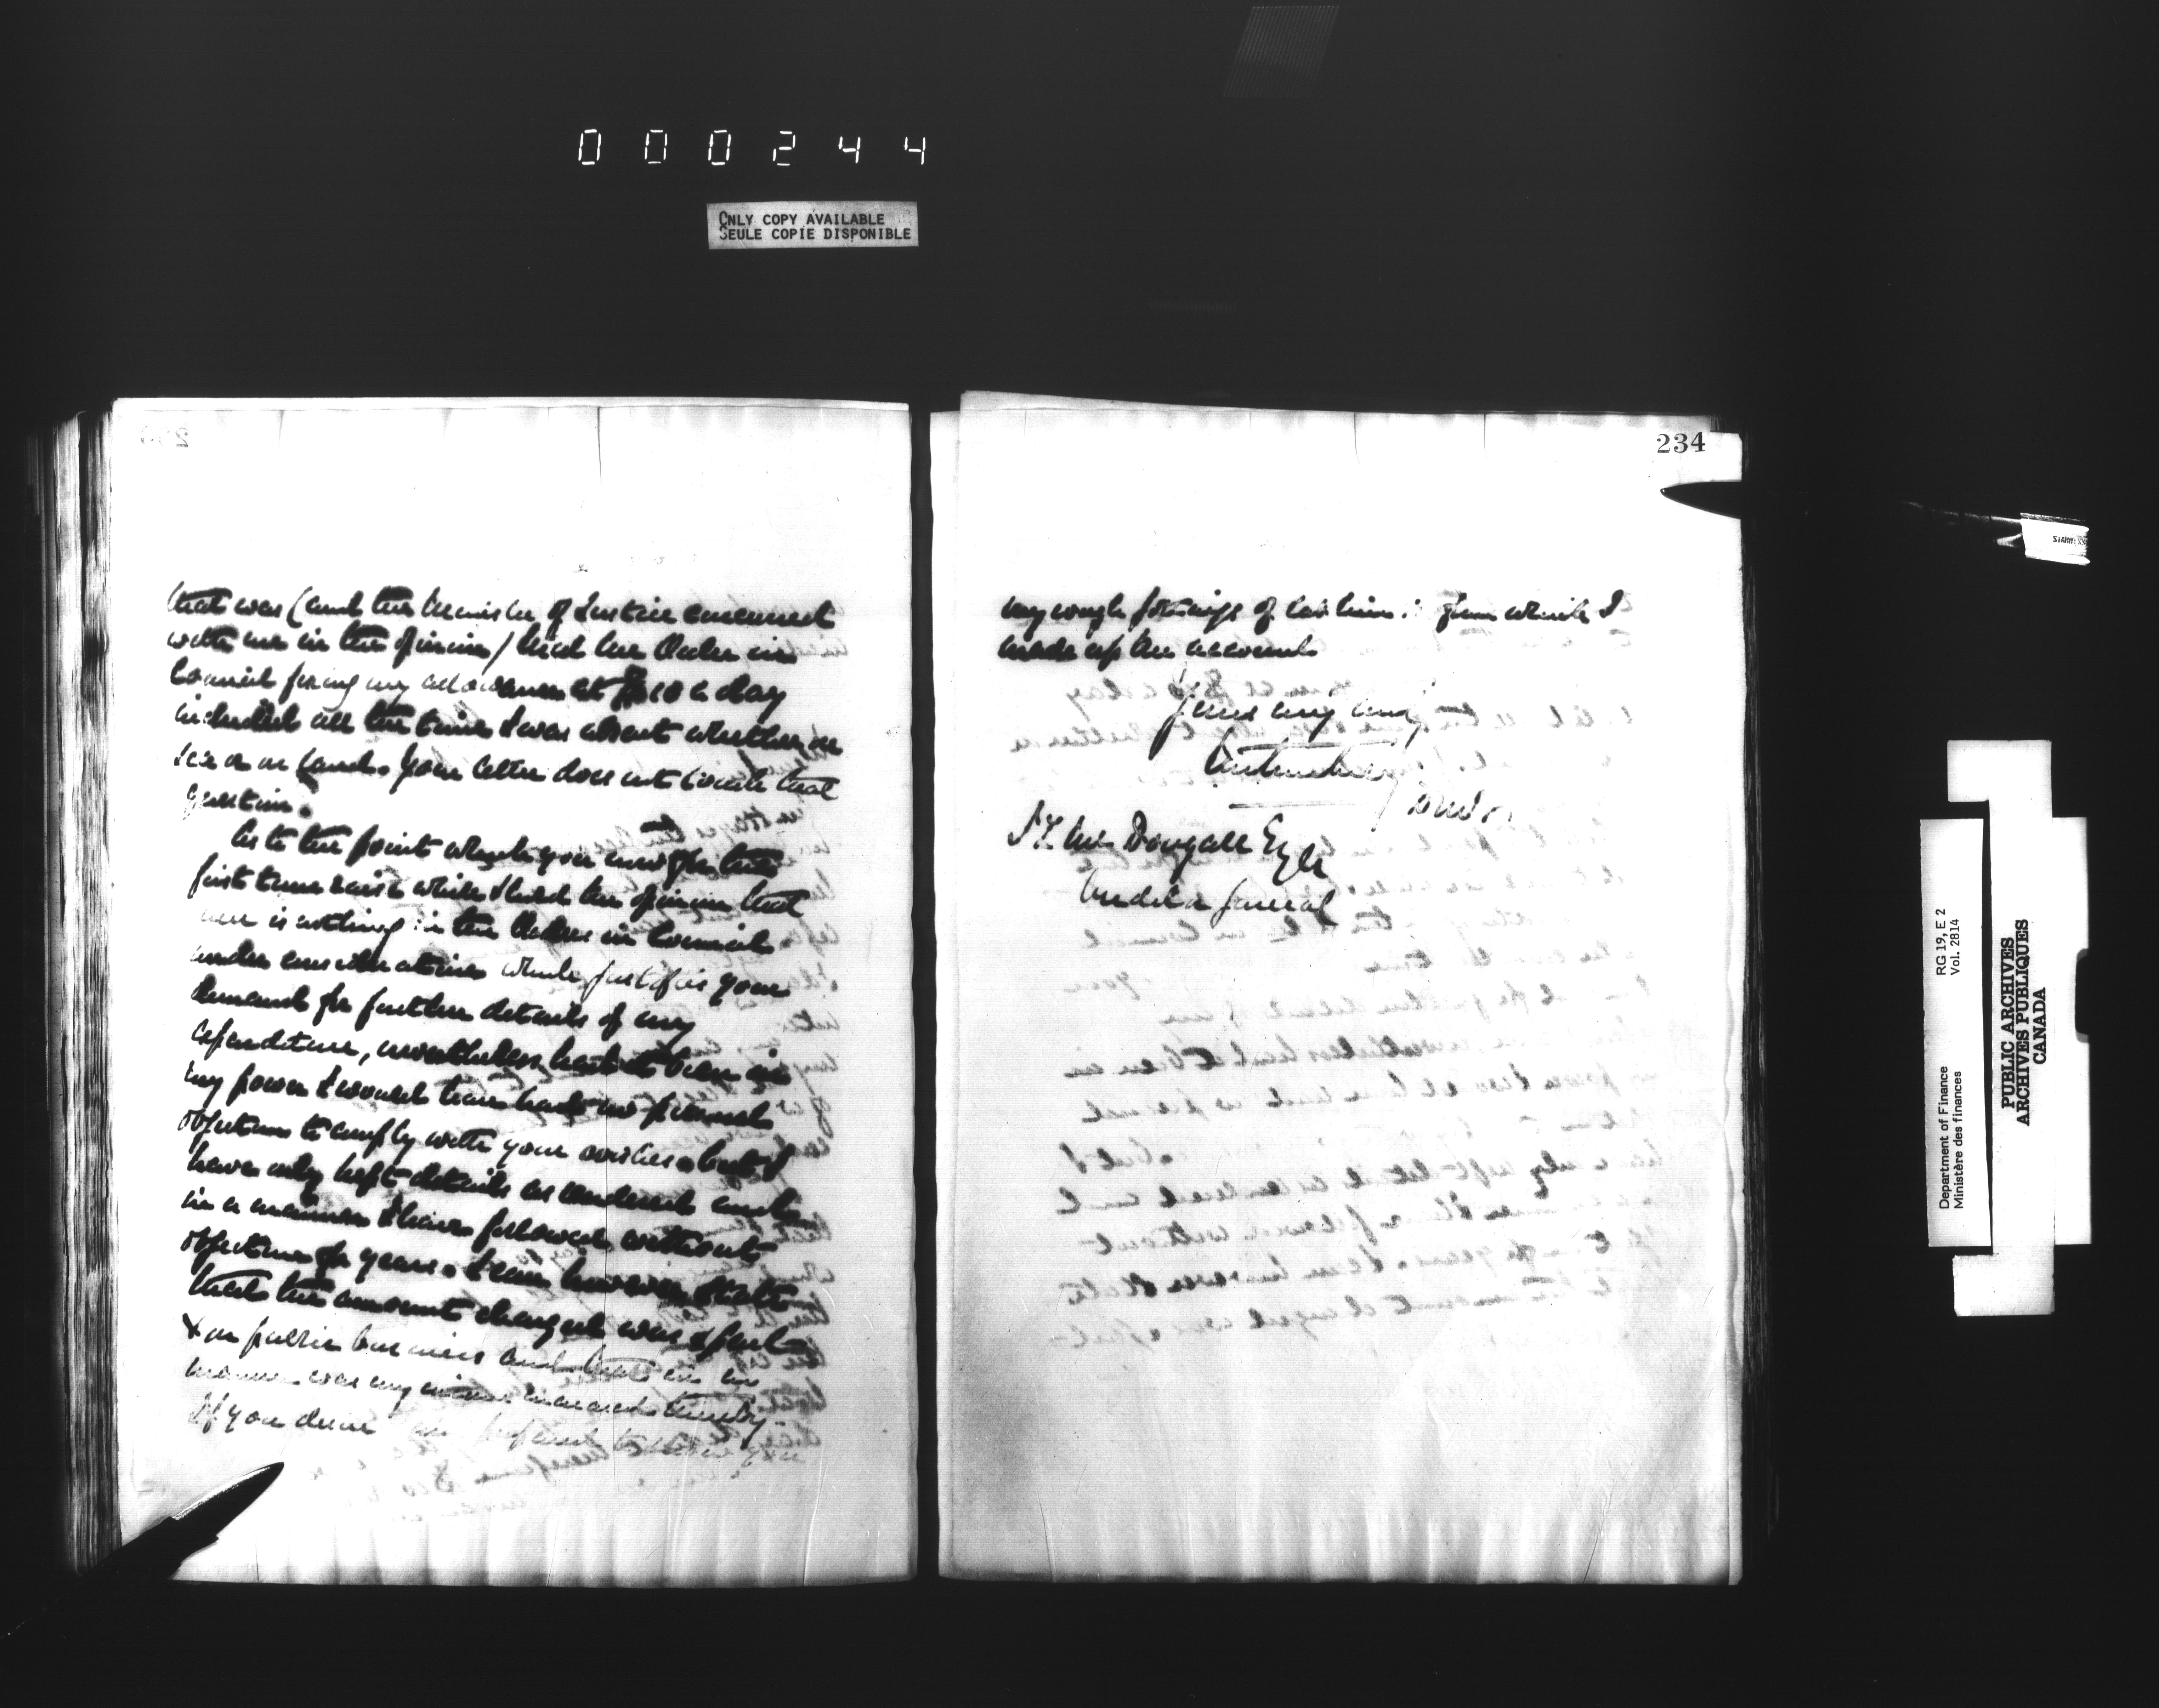 000244
ONLY COPY AVAILABLE
SEULE COPIE DISPONIBLE
that was (and the Minister of Justice concurred
with me in the opinion) that the Order in
Council fixing my allowance at $10 a day
included all the time I was absent whether on
sea or on land. Your letter does not touch that
question.
As to the point which you now for the
first time raise while I hold the opinion that
there is nothing in the Order in Council
under consideration which justifies your
demand for further details of my
expenditure, nevertheless had it been in
my power I would have had no personal
objection to comply with your wishes but I
have only kept details as rendered and
in a manner I have followed without
objection for years. I can however state
that the amount charged was spent
on public business and that in no
manner was my income increased thereby.
If you desire I am prepared to show you
234
my rough jottings of from which I
made up the account
Yours very truly
J L McDougall Esqre
Auditor General
STAINLESS
Department of Finance
Ministère des finances
RG 19, E 2
Vol. 2814
PUBLIC ARCHIVES
ARCHIVES PUBLIQUES
CANADA